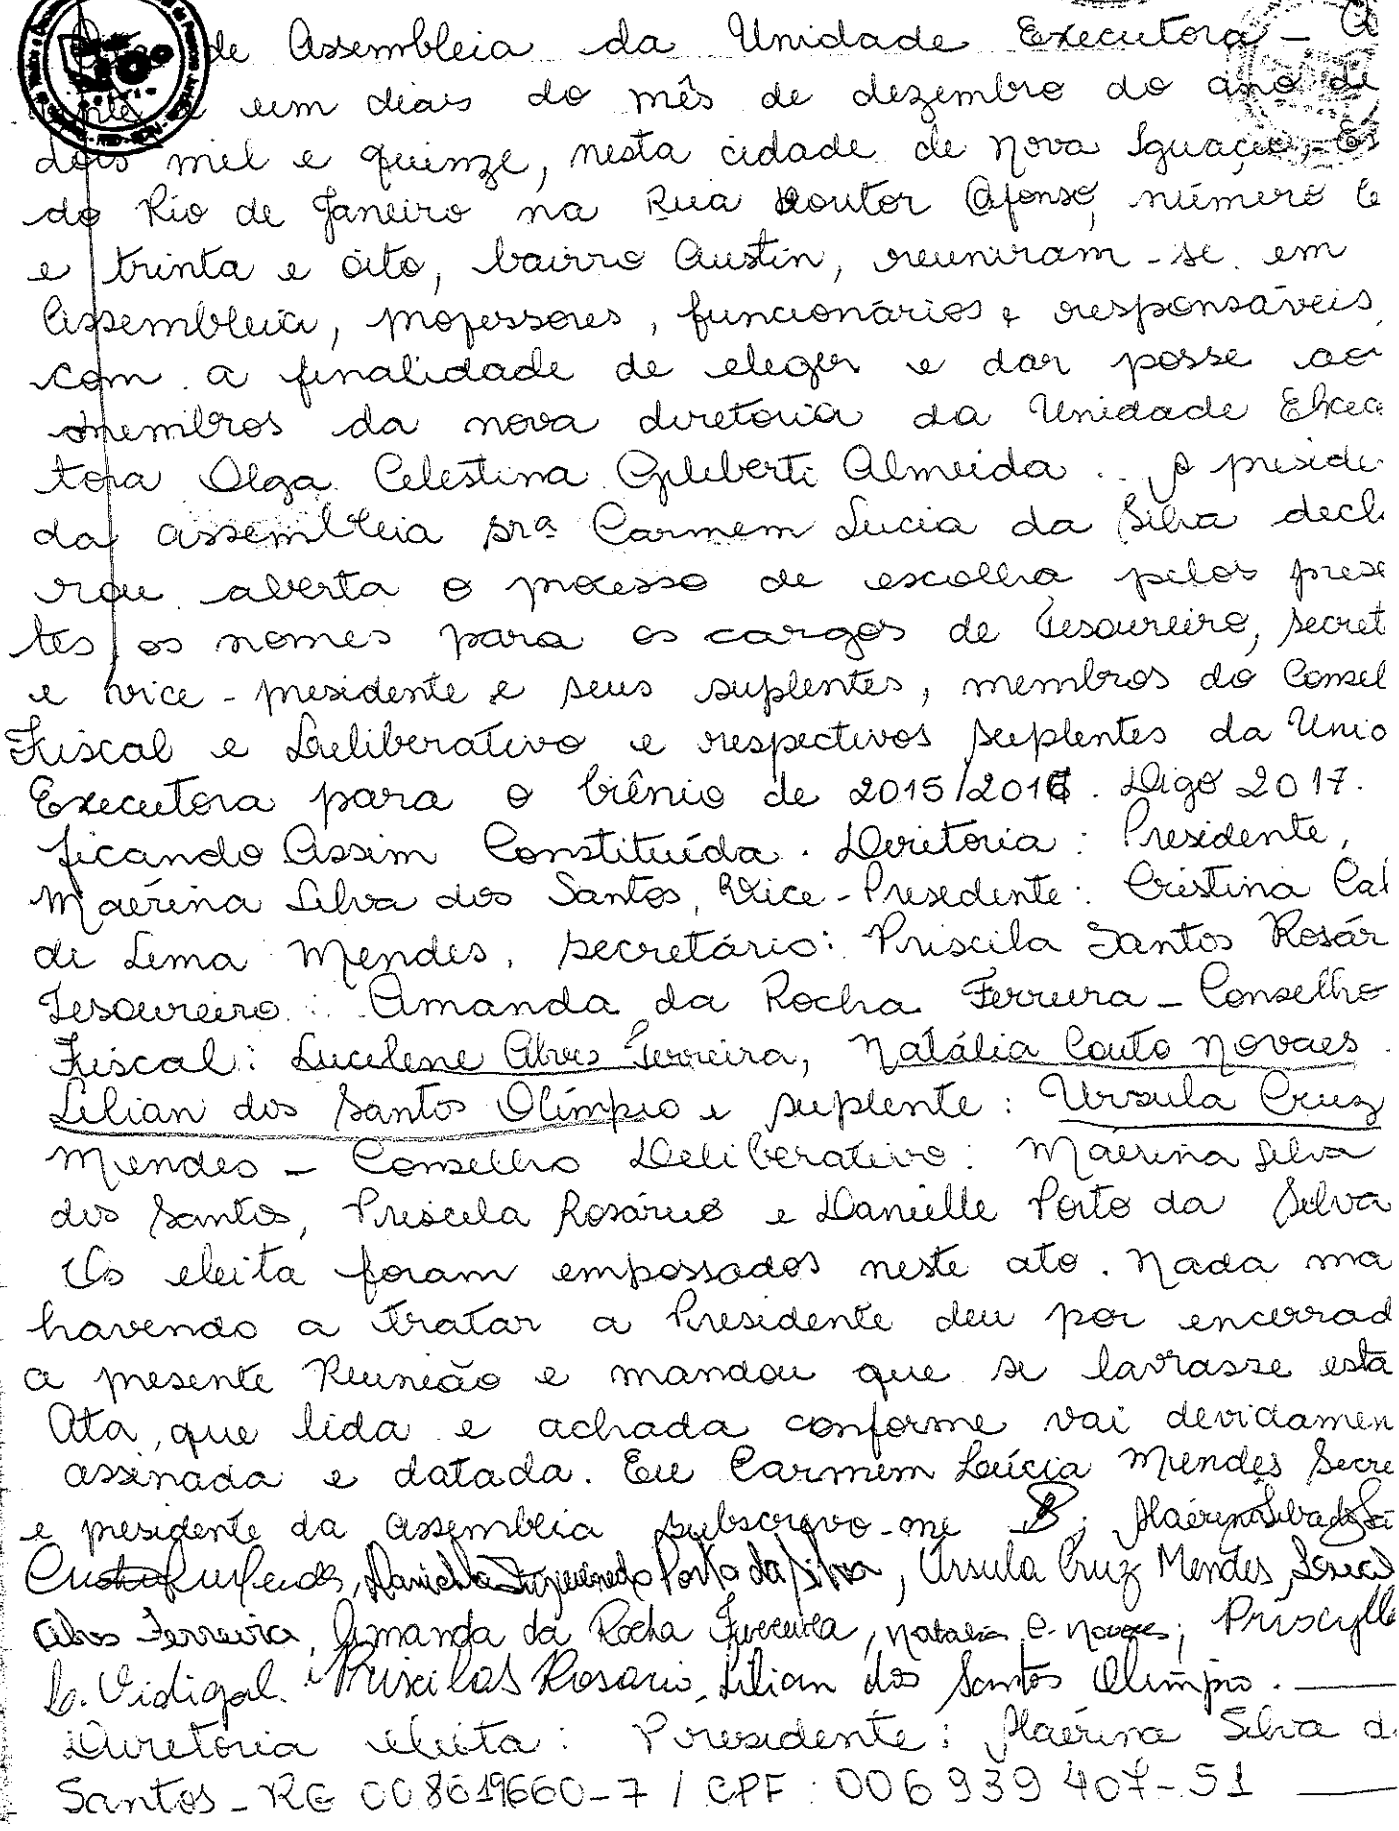 de Assembleia da Unidade Executora - A
e um dias do mês de dezembro do ano de
dois mil e quinze, nesta cidade de Nova Iguaçu, Es
do Rio de Janeiro na Rua Doutor Afonso, número Ce
e trinta e oito, bairro Austin, reuniram-se em
Assembleia, professores, funcionários e responsáveis,
com a finalidade de eleger e dar posse ao
membros da nova diretoria da Unidade Execu
tora Olga Celestina Giliberti Almeida. A preside
da assembleia srª Carmem Lucia da Silva decl
rou aberta o processo de escolha pelos prese
tes os nomes para os cargos de Tesoureiro, secret
e vice-presidente e seus suplentes, membros do Consel
Fiscal e Deliberativo e respectivos suplentes da Unid
Executora para o biênio de 2015/2016. Digo 2017.
ficando Assim Constituída. Diretoria: Presidente,
Maérina Silva dos Santos, Vice-Presidente: Cristina Cal
de Lima Mendes, secretário: Priscila Santos Rosár
Tesoureiro: Amanda da Rocha Ferreira - Conselho
Fiscal: Lucilene Alves Ferreira, Natália Couto Novaes.
Lilian dos Santos Olímpio e suplente: Ursula Cruz
Mendes - Conselho Deliberativo: Maérina Silva
dos Santos, Priscila Rosário e Danielle Porto da Silva
Os eleita foram empossados neste ato. Nada ma
havendo a tratar a Presidente deu por encerrad
a presente Reunião e mandou que se lavrasse esta
Ata, que lida e achada conforme vai devidamen
assinada e datada. Eu Carmem Lúcia Mendes Secre
e presidente da assembleia subscrevo-me Maérina Silva dos Sa
Porto da Silva, Úrsula Cruz Mendes,
Alves Ferreira, Amanda da Rocha Ferreira, Natalia C. Novaes; Priscylla
C. Vidigal. Priscila S Rosario, Lilian dos Santos Olímpio.
Diretoria eleita: Presidente: Maérina Silva d
Santos - RG 008619660-7 / CPF: 006 939 407-51